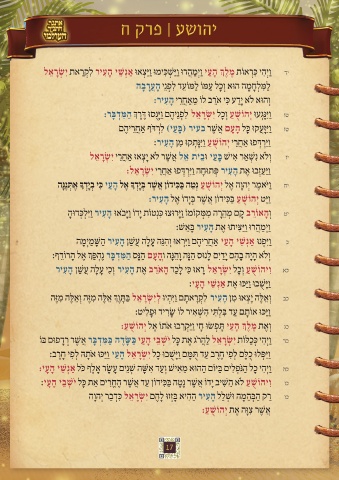 יהושע | פרק ח
יד וַיְהִי כִּרְאוֹת מֶלֶךְ הָעַי וַיְמַהֲרוּ וַיַּשְׁכִּימוּ וַיֵּצְאוּ אַנְשֵׁי הָעִיר לִקְרַאת יִשְׂרָאֵל
לַמִּלְחָמָה הוּא וְכָל עַמּוֹ לַמּוֹעֵד לִפְנֵי הָעֲרָבָה
וְהוּא לֹא יָדַע כִּי אֹרֵב לוֹ מֵאַחֲרֵי הָעִיר:
טו וַיִּנָּגְעוּ יְהוֹשֻׁעַ וְכָל יִשְׂרָאֵל לִפְנֵיהֶם וַיָּנֻסוּ דֶּרֶךְ הַמִּדְבָּר:
טז וַיִּזָּעֲקוּ כָּל הָעָם אֲשֶׁר בעיר (בָּעַי) לִרְדֹּף אַחֲרֵיהֶם
וַיִּרְדְּפוּ אַחֲרֵי יְהוֹשֻׁעַ וַיִּנָּתְקוּ מִן הָעִיר:
יז וְלֹא נִשְׁאַר אִישׁ בָּעַי וּבֵית אֵל אֲשֶׁר לֹא יָצְאוּ אַחֲרֵי יִשְׂרָאֵל
וַיַּעַזְבוּ אֶת הָעִיר פְּתוּחָה וַיִּרְדְּפוּ אַחֲרֵי יִשְׂרָאֵל:
יח וַיֹּאמֶר יְהוָה אֶל יְהוֹשֻׁעַ נְטֵה בַּכִּידוֹן אֲשֶׁר בְּיָדְךָ אֶל הָעַי כִּי בְיָדְךָ אֶתְּנֶנָּה
וַיֵּט יְהוֹשֻׁעַ בַּכִּידוֹן אֲשֶׁר בְּיָדוֹ אֶל הָעִיר:
יט וְהָאוֹרֵב קָם מְהֵרָה מִמְּקוֹמוֹ וַיָּרוּצוּ כִּנְטוֹת יָדוֹ וַיָּבֹאוּ הָעִיר וַיִּלְכְּדוּהָ
וַיְמַהֲרוּ וַיַּצִּיתוּ אֶת הָעִיר בָּאֵשׁ:
כ וַיִּפְנוּ אַנְשֵׁי הָעַי אַחֲרֵיהֶם וַיִּרְאוּ וְהִנֵּה עָלָה עֲשַׁן הָעִיר הַשָּׁמַיְמָה
וְלֹא הָיָה בָהֶם יָדַיִם לָנוּס הֵנָּה וָהֵנָּה וְהָעָם הַנָּס הַמִּדְבָּר נֶהְפַּךְ אֶל הָרוֹדֵף:
כא וִיהוֹשֻׁעַ וְכָל יִשְׂרָאֵל רָאוּ כִּי לָכַד הָאֹרֵב אֶת הָעִיר וְכִי עָלָה עֲשַׁן הָעִיר
וַיָּשֻׁבוּ וַיַּכּוּ אֶת אַנְשֵׁי הָעָי:
כב וְאֵלֶּה יָצְאוּ מִן הָעִיר לִקְרָאתָם וַיִּהְיוּ לְיִשְׂרָאֵל בַּתָּוֶךְ אֵלֶּה מִזֶּה וְאֵלֶּה מִזֶּה
וַיַּכּוּ אוֹתָם עַד בִּלְתִּי הִשְׁאִיר לוֹ שָׂרִיד וּפָלִיט:
כג וְאֶת מֶלֶךְ הָעַי תָּפְשׂוּ חָי וַיַּקְרִבוּ אֹתוֹ אֶל יְהוֹשֻׁעַ:
כד וַיְהִי כְּכַלּוֹת יִשְׂרָאֵל לַהֲרֹג אֶת כָּל יֹשְׁבֵי הָעַי בַּשָּׂדֶה בַּמִּדְבָּר אֲשֶׁר רְדָפוּם בּוֹ
וַיִּפְּלוּ כֻלָּם לְפִי חֶרֶב עַד תֻּמָּם וַיָּשֻׁבוּ כָל יִשְׂרָאֵל הָעַי וַיַּכּוּ אֹתָהּ לְפִי חָרֶב:
כה וַיְהִי כָל הַנֹּפְלִים בַּיּוֹם הַהוּא מֵאִישׁ וְעַד אִשָּׁה שְׁנֵים עָשָׂר אָלֶף כֹּל אַנְשֵׁי הָעָי:
כו וִיהוֹשֻׁעַ לֹא הֵשִׁיב יָדוֹ אֲשֶׁר נָטָה בַּכִּידוֹן עַד אֲשֶׁר הֶחֱרִים אֵת כָּל יֹשְׁבֵי הָעָי:
כז רַק הַבְּהֵמָה וּשְׁלַל הָעִיר הַהִיא בָּזְזוּ לָהֶם יִשְׂרָאֵל כִּדְבַר יְהוָה
אֲשֶׁר צִוָּה אֶת יְהוֹשֻׁעַ:
17